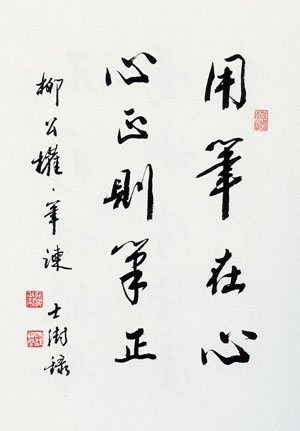 用筆在心
心正則筆正
柳公權筆諫 士澍錄